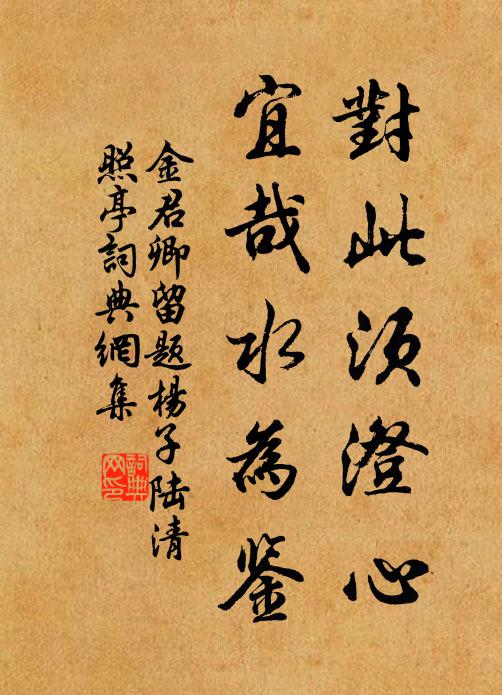 對此須澄心
宜哉水為鉴
金君卿留題楊子陆清
照亭詞典網集
詞典网印